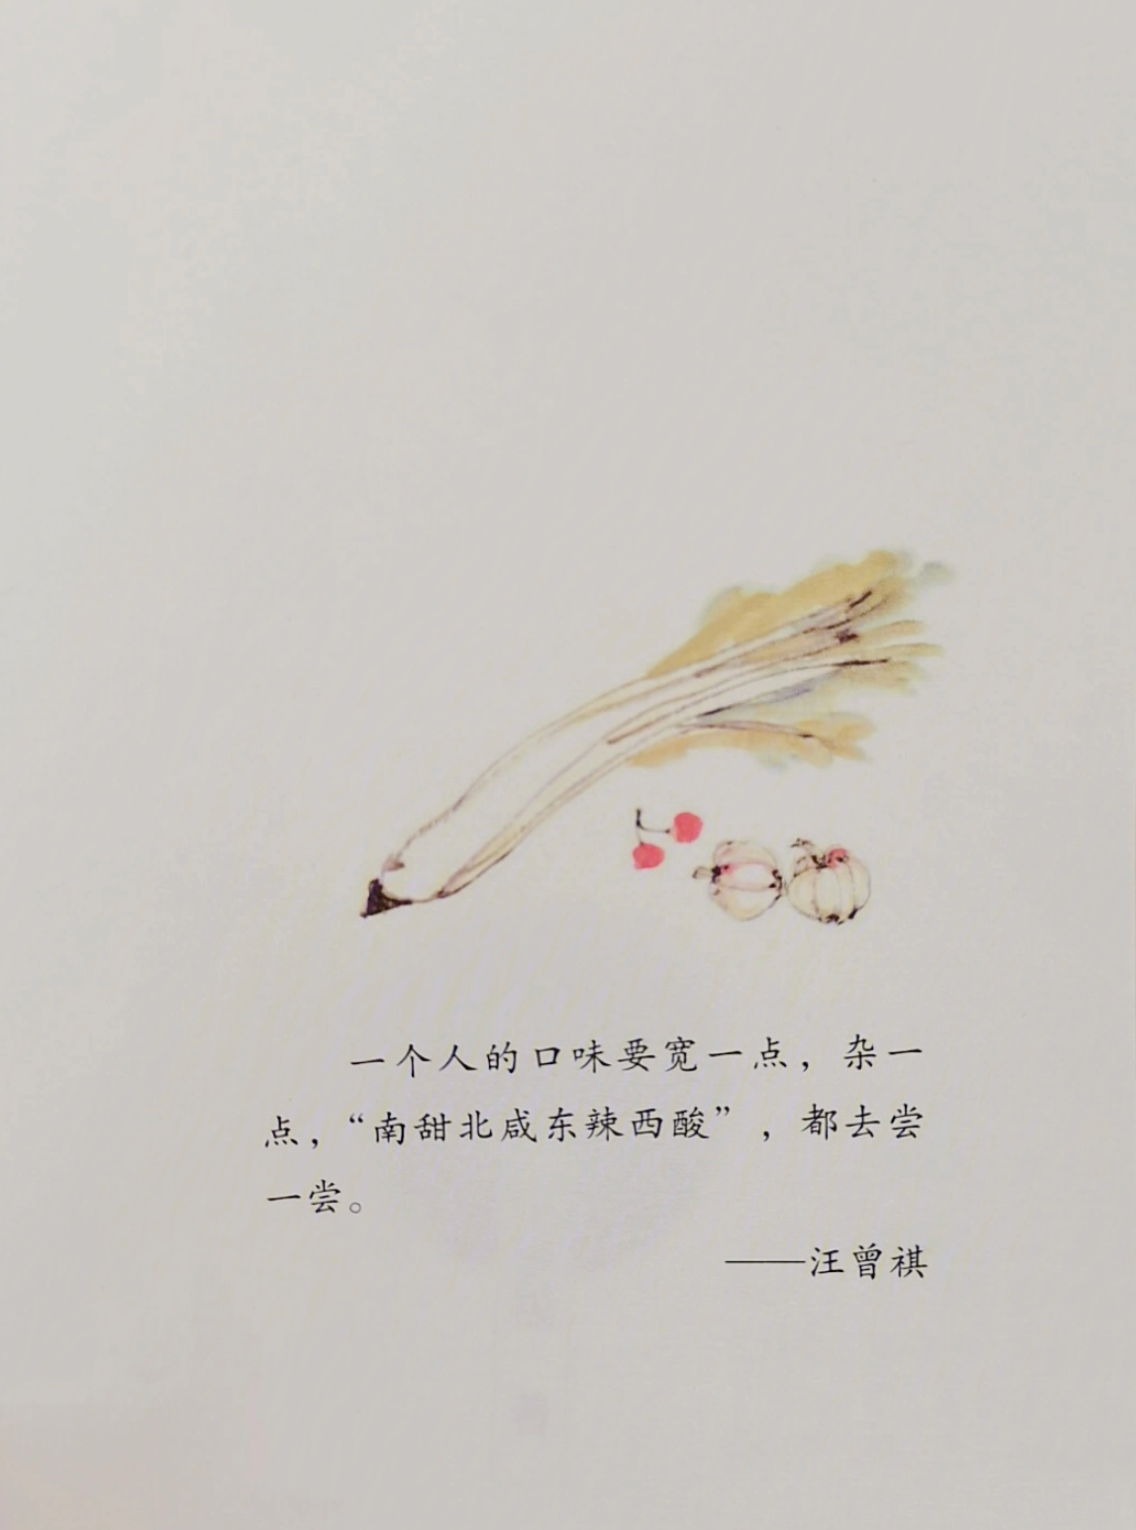 一个人的口味要宽一点，杂一
点，“南甜北咸东辣西酸”，都去尝
一尝。
——汪曾祺